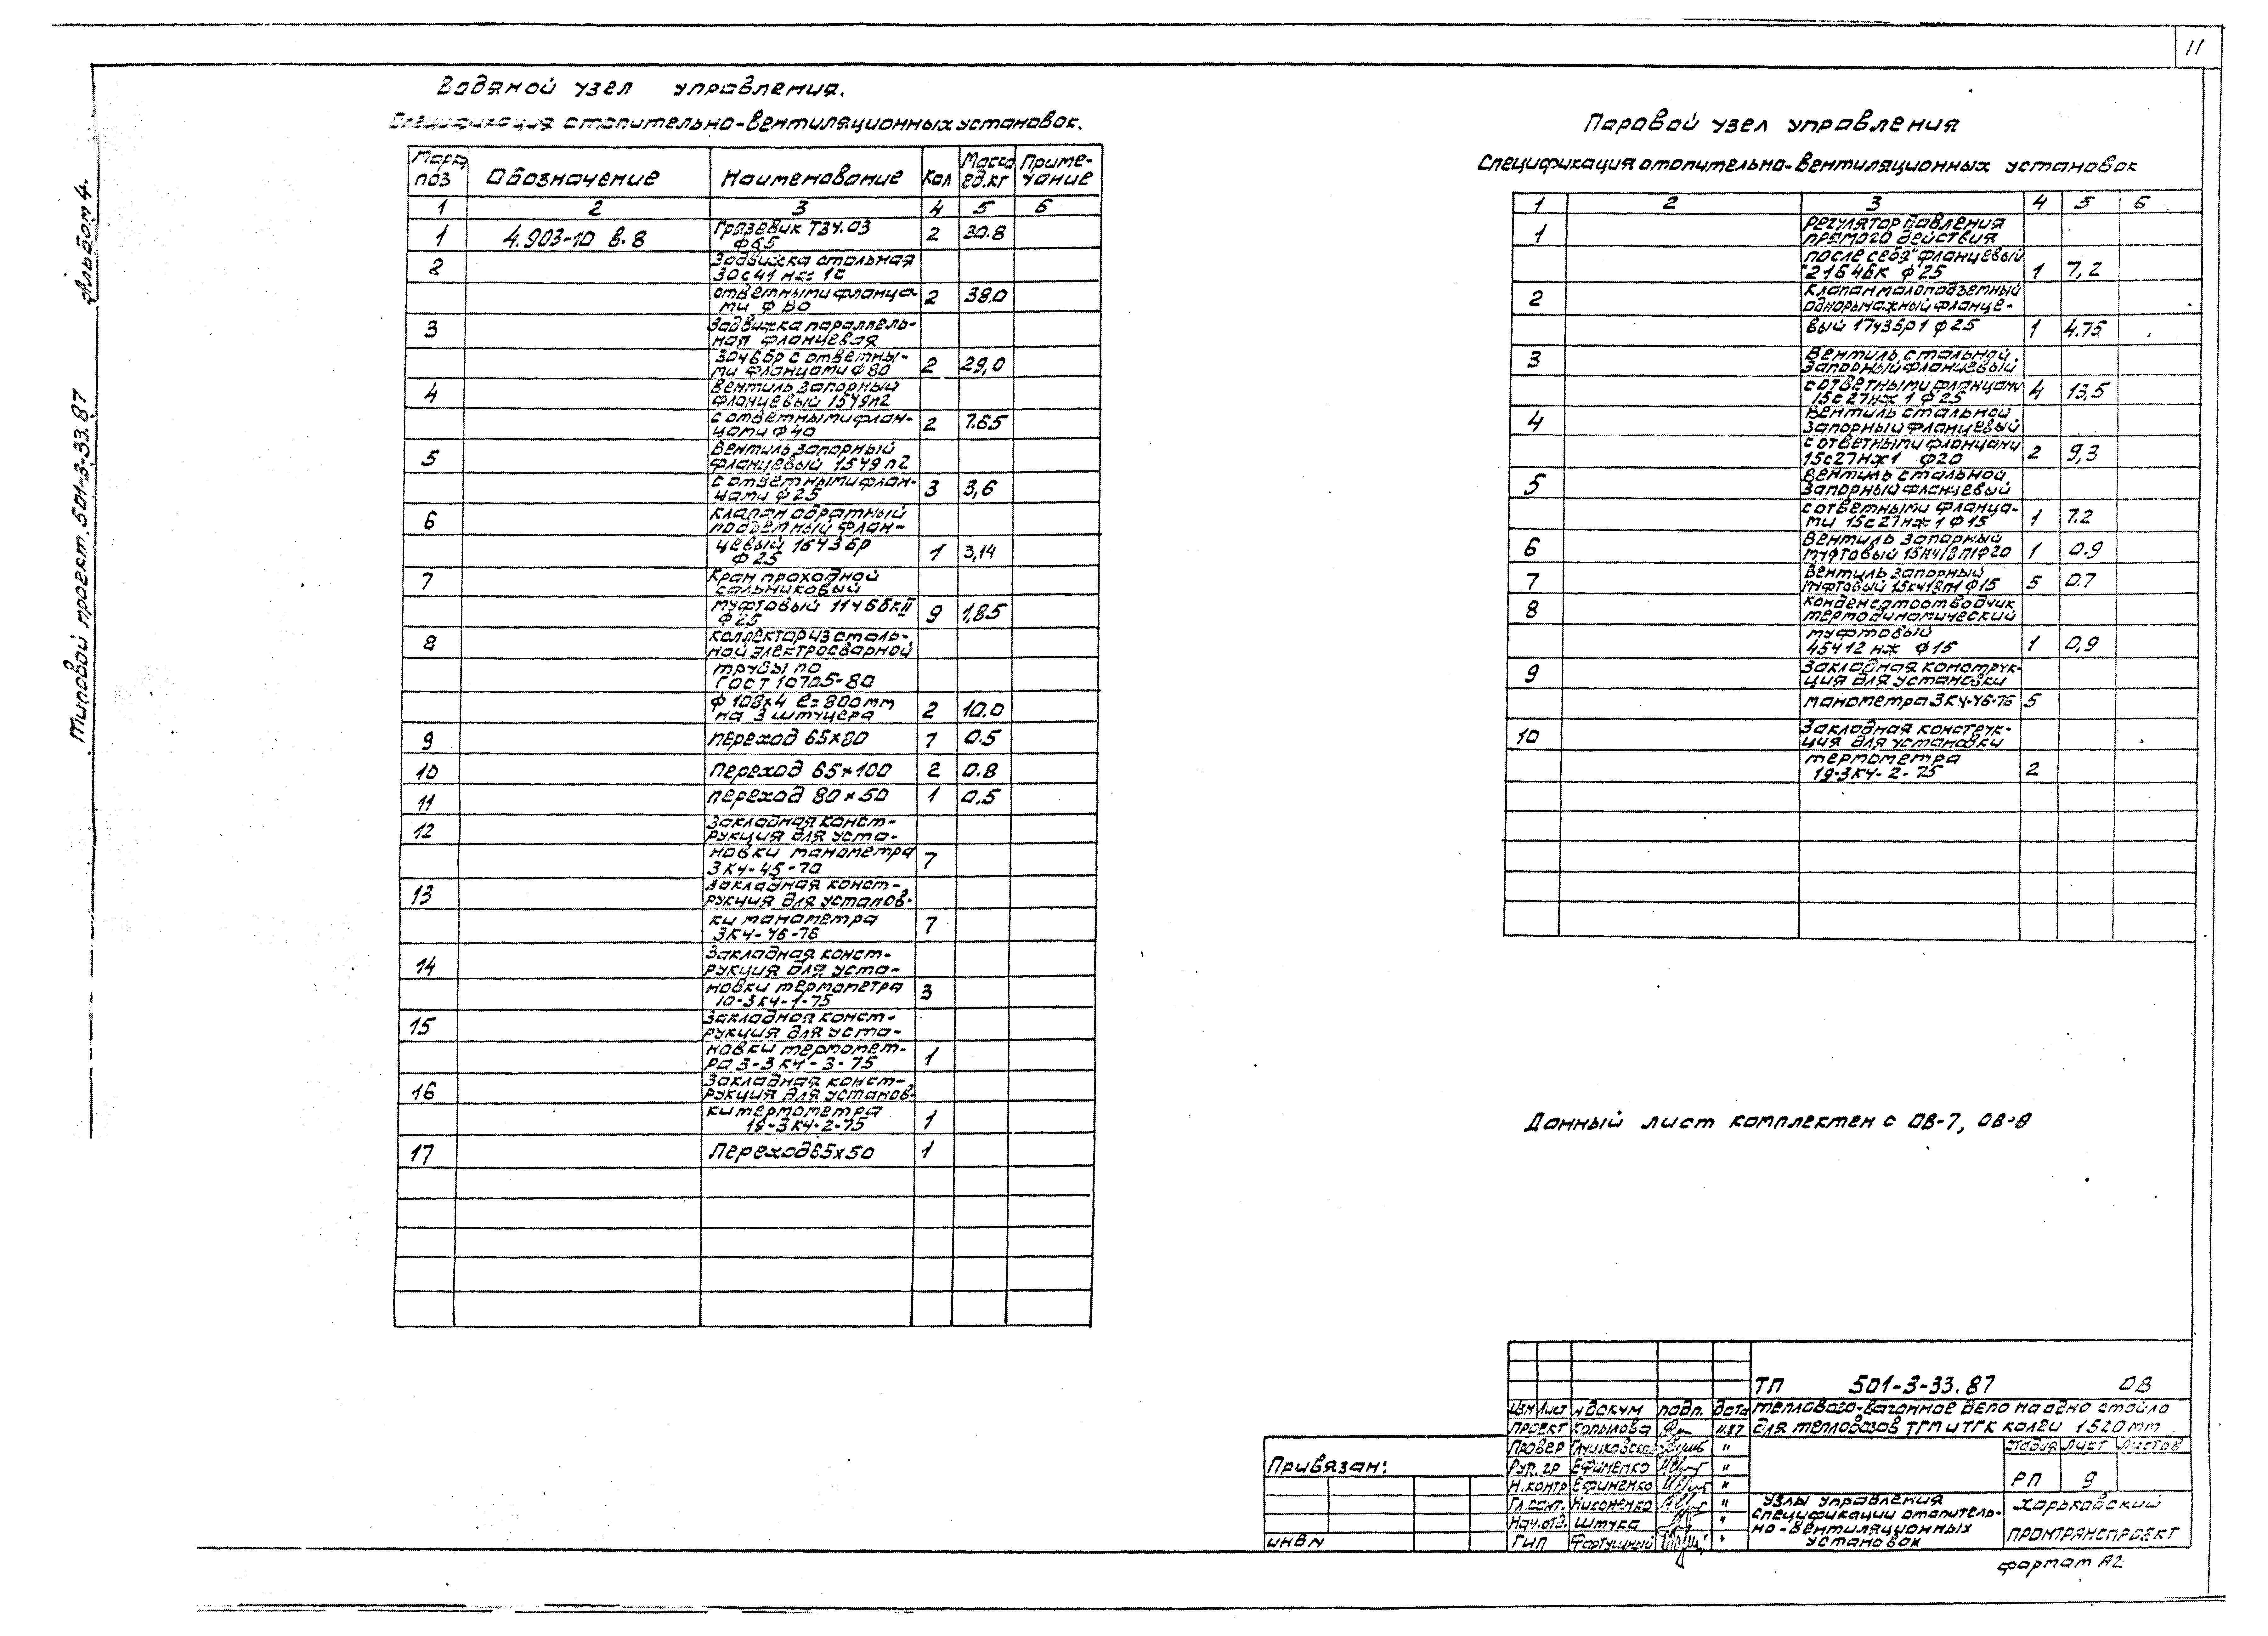 11
Альбом 4.
Типовой проект. 501-3-33.87
Водяной узел управления.
Спецификация отопительно-вентиляционных установок.
Марка поз | Обозначение | Наименование | Кол | Масса ед.кг | Приме-чание
1 | 2 | 3 | 4 | 5 | 6
1 | 4.903-10 в.8 | Грязевик ТЗ4.03 | 2 | 30.8
ф65
2 | Задвижка стальная
30с41 нж
ответными фланца- | 2 | 38.0
ми
3 | Задвижка параллель-
ная фланцевая
30ч6бр с ответны- | 2 | 29,0
ми фланцами ф80
4 | Вентиль запорный
фланцевый 15ч9п2
с ответными флан- | 2 | 7.65
цами ф40
5 | Вентиль запорный
фланцевый 15ч9п2
с ответными флан- | 3 | 3,6
цами ф25
6 | Клапан обратный
подъемный флан-
цевый 16ч3бр | 1 | 3,14
ф25
7 | Кран проходной
сальниковый
муфтовый 11ч6бкII | 9 | 1,85
ф25
8 | Коллектор из сталь-
ной электросварной
трубы по
ГОСТ 10705-80
ф108х4 ℓ=800мм
на 3 штуцера | 2 | 10.0
9 | Переход 65х80 | 7 | 0.5
10 | Переход 65х100 | 2 | 0.8
11 | переход 80х50 | 1 | 0.5
12 | Закладная конст-
рукция для уста-
новки манометра | 7
ЗК4-45-70
13 | Закладная конст-
рукция для установ-
ки манометра | 7
ЗК4-46-76
14 | Закладная конст-
рукция для уста-
новки термометра | 3
10-ЗК4-1-75
15 | Закладная конст-
рукция для уста-
новки термомет- | 1
ра 3-ЗК4-3-75
16 | Закладная конст-
рукция для установ-
ки термометра | 1
19-ЗК4-2-75
17 | Переход 65х50 | 1
Паровой узел управления
Спецификация отопительно-вентиляционных установок
1 | 2 | 3 | 4 | 5 | 6
1 | Регулятор давления
прямого действия
"после себя" фланцевый
21б4бк ф25 | 1 | 7,2
2 | Клапан малоподъемный
однорычажный фланце-
вый 17ч3бр1 ф25 | 1 | 4.75
3 | Вентиль стальной.
Запорный фланцевый
с ответными фланцами | 4 | 13,5
15с27нж 1 ф25
4 | Вентиль стальной.
Запорный фланцевый
с ответными фланцами | 2 | 9,3
15с27нж1 ф20
5 | Вентиль стальной.
Запорный фланцевый
с ответными фланца- | 1 | 7.2
ми 15с27нж1 ф15
6 | Вентиль запорный
муфтовый 15кч18п1ф20 | 1 | 0.9
7 | Вентиль запорный
муфтовый 15кч18п1 ф15 | 5 | 0.7
8 | Конденсатоотводчик
термодинамический
муфтовый
45ч12 нж ф15 | 1 | 0,9
9 | Закладная конструк-
ция для установки
манометра ЗК4-46-76 | 5
10 | Закладная конструк-
ция для установки
термометра
19-ЗК4-2-75 | 2
Данный лист комплектен с ОВ-7, ОВ-8
Привязан:
инв N
ТП 501-3-33.87 ОВ
изм лист N докум подп. дата
Тепловозо-вагонное депо на одно стойло
для тепловозов ТГМ и ТГК колеи 1520 мм
Проект Копылова 11.87
Провер Глушковская "
Рук. гр Ефименко "
Н.контр Ефименко "
Гл.сант. Никоненко "
Нач.отд. Штука "
ГИП Фартушный "
стадия лист листов
РП 9
Узлы управления
спецификации отопитель-
но-вентиляционных
установок
Харьковский
ПРОМТРАНСПРОЕКТ
формат А2